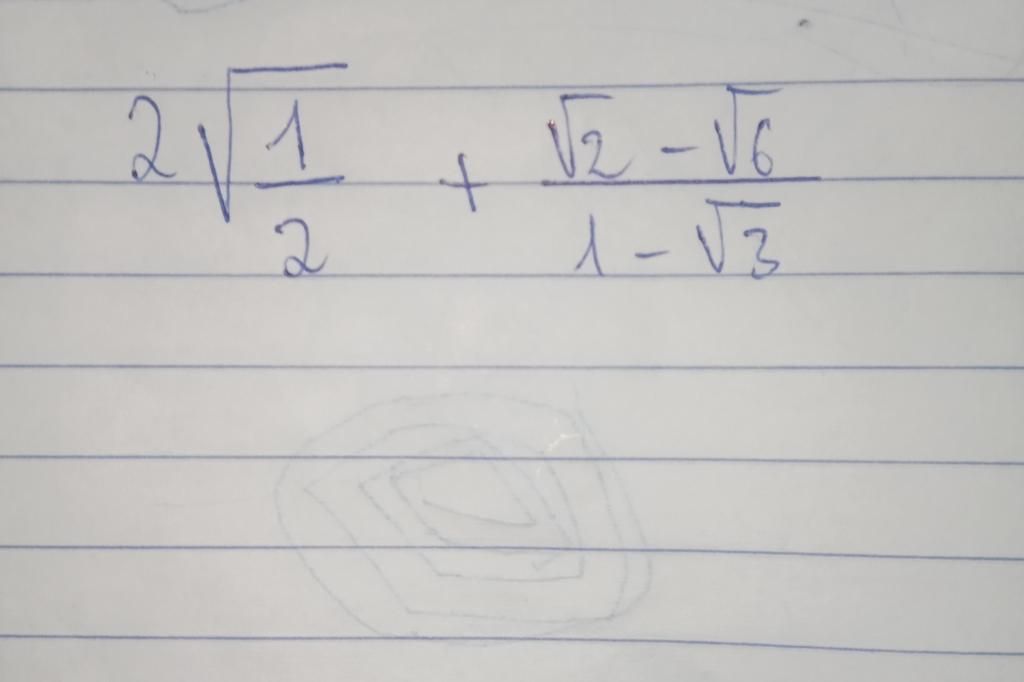 2√(1/2) + (√2 - √6)/(1 - √3)